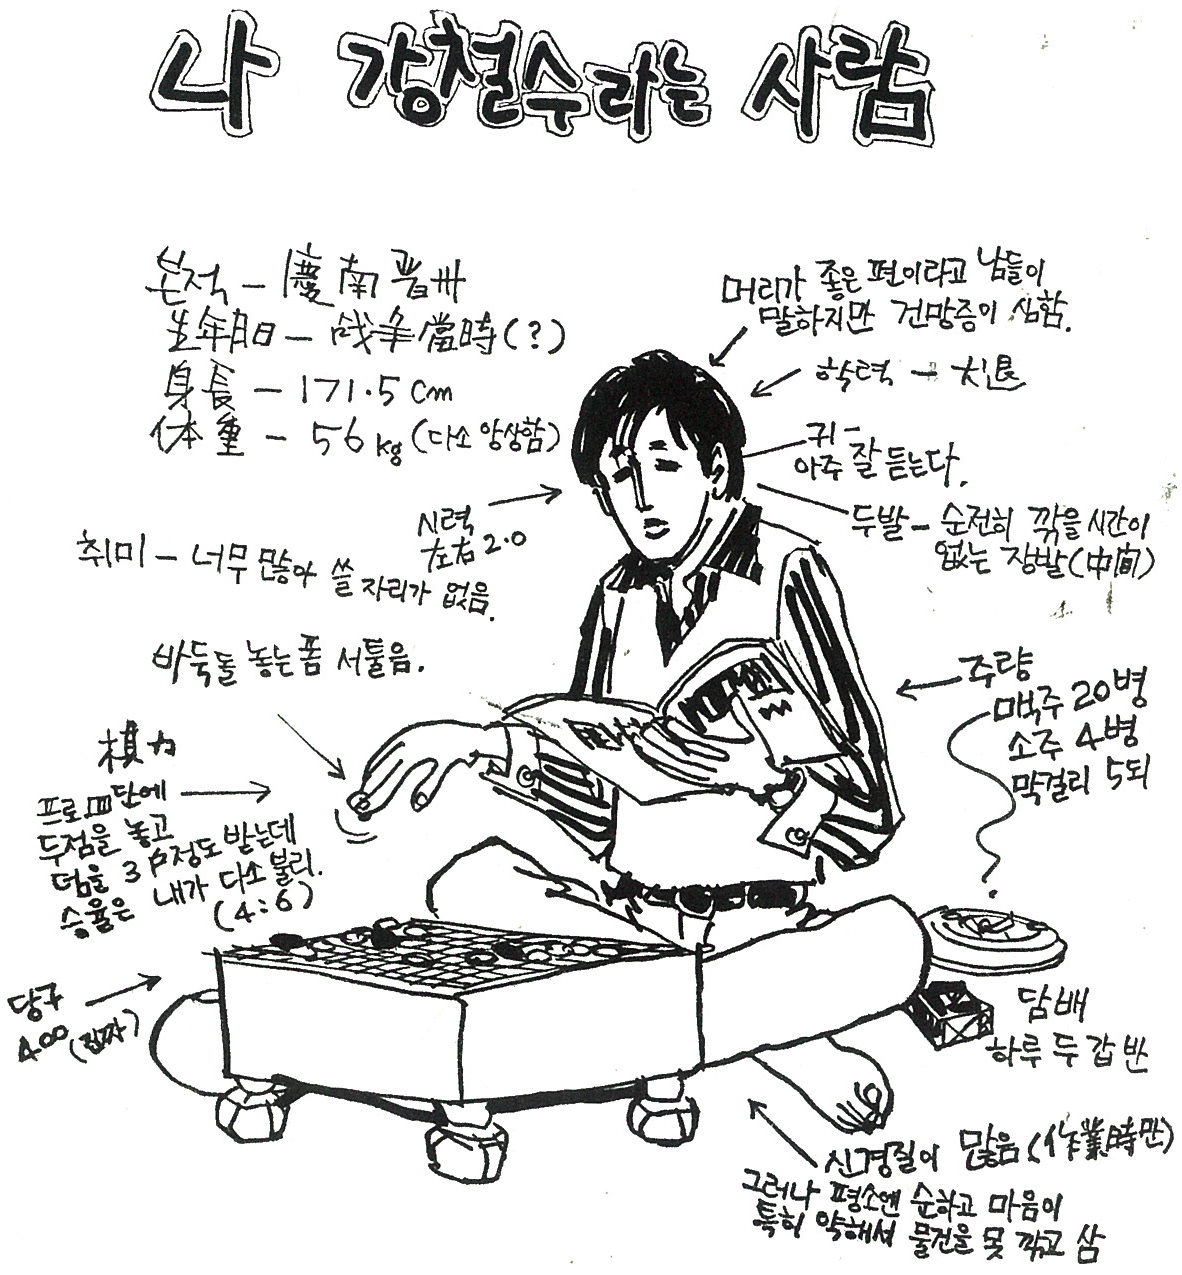 나 강철수라는 사람
본적 - 慶南晋州
生年月日 - 戦争當時(?)
身長 - 171.5 cm
体重 - 56 kg (다소 앙상함)
머리가 좋은 편이라고 남들이
말하지만 건망증이 심함.
학력 - 大退
귀 -
아주 잘 듣는다.
시력
左右 2.0
두발 - 순전히 깎을 시간이
없는 장발(中間)
취미 - 너무 많아 쓸 자리가 없음.
바둑돌 놓는 폼 서툴음.
주량
맥주 20병
소주 4병
막걸리 5되
棋力
프로 Ⅲ단에
두점을 놓고
덤을 3 户정도 받는데
승율은 내가 다소 불리.
(4:6)
당구
400 (진짜)
담배
하루 두 갑 반
신경질이 많음 (作業時만)
그러나 평소엔 순하고 마음이
특히 약해서 물건을 못 깎고 삼